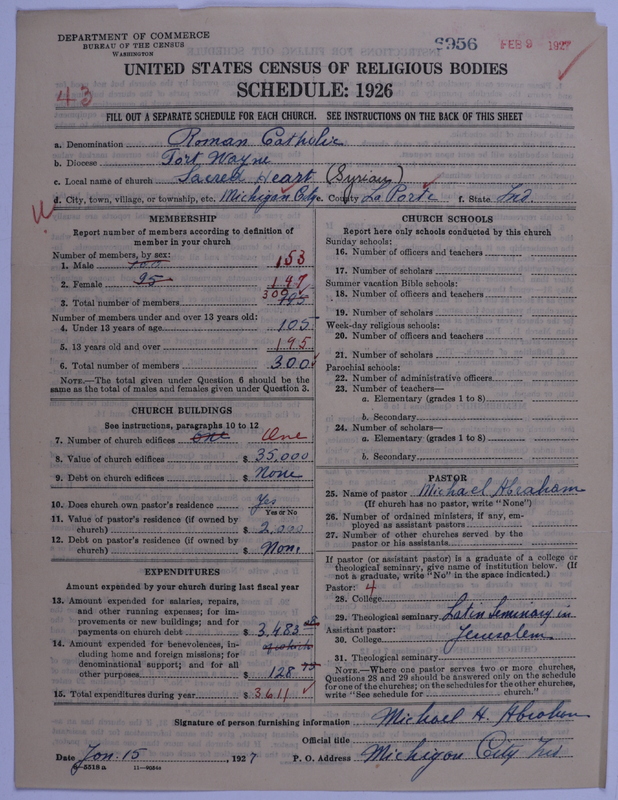 DEPARTMENT OF COMMERCE
BUREAU OF THE CENSUS
WASHINGTON
8956 FEB 9 1927
UNITED STATES CENSUS OF RELIGIOUS BODIES
SCHEDULE: 1926
43
FILL OUT A SEPARATE SCHEDULE FOR EACH CHURCH. SEE INSTRUCTIONS ON THE BACK OF THIS SHEET
a. Denomination Roman Catholic
b. Diocese Fort Wayne
c. Local name of church Sacred Heart (Syrian)
d. City, town, village, or township, etc. Michigan City e. County La Porte f. State Ind.
MEMBERSHIP
Report number of members according to definition of
member in your church
Number of members, by sex:
1. Male 100 153
2. Female 95 147
3. Total number of members 300 195
Number of members under and over 13 years old:
4. Under 13 years of age 105
5. 13 years old and over 195
6. Total number of members 300
NOTE.—The total given under Question 6 should be the
same as the total of males and females given under Question 3.
CHURCH BUILDINGS
See instructions, paragraphs 10 to 12
7. Number of church edifices one One
8. Value of church edifices $ 35,000
9. Debt on church edifices $ None
10. Does church own pastor's residence Yes
Yes or No
11. Value of pastor's residence (if owned by
church) $ 2,000
12. Debt on pastor's residence (if owned by
church) $ None
EXPENDITURES
Amount expended by your church during last fiscal year
13. Amount expended for salaries, repairs,
and other running expenses; for im-
provements or new buildings; and for
payments on church debt $ 3,483
14. Amount expended for benevolences, in-
cluding home and foreign missions; for
denominational support; and for all
other purposes $ 128
15. Total expenditures during year $ 3611
CHURCH SCHOOLS
Report here only schools conducted by this church
Sunday schools:
16. Number of officers and teachers
17. Number of scholars
Summer vacation Bible schools:
18. Number of officers and teachers
19. Number of scholars
Week-day religious schools:
20. Number of officers and teachers
21. Number of scholars
Parochial schools:
22. Number of administrative officers
23. Number of teachers—
a. Elementary (grades 1 to 8)
b. Secondary
24. Number of scholars—
a. Elementary (grades 1 to 8)
b. Secondary
PASTOR
25. Name of pastor Michael Abraham
(If church has no pastor, write "None")
26. Number of ordained ministers, if any, em-
ployed as assistant pastors
27. Number of other churches served by the
pastor or his assistants
If pastor (or assistant pastor) is a graduate of a college or
theological seminary, give name of institution below. (If
not a graduate, write "No" in the space indicated.)
Pastor: 4
28. College
29. Theological seminary Latin Seminary in
Assistant pastor: Jerusalem
30. College
31. Theological seminary
NOTE.—Where one pastor serves two or more churches,
Questions 28 and 29 should be answered only on the schedule
for one of the churches; on the schedules for the other churches,
write "See schedule for church."
Signature of person furnishing information Michael H. Abraham
Official title
Date Jan. 15, 1927 P. O. Address Michigan City Ind
8-5518 a 11-9034a